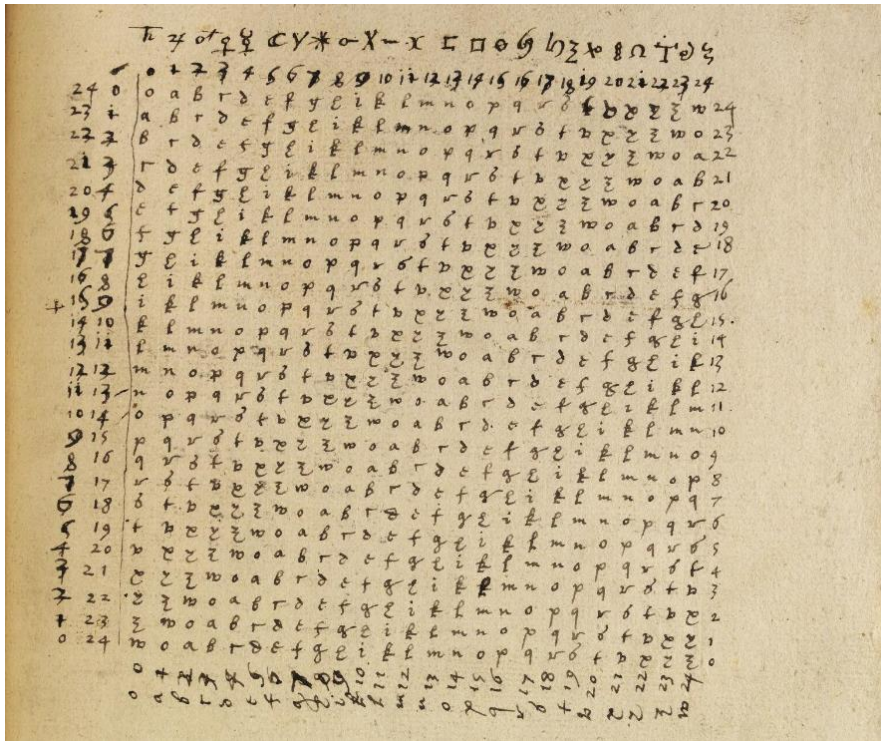 ♄ ♃ ♂ ♀ ☿ ☾ Y
0 1 2 3 4 5 6 7 8 9 10 11 12 13 14 15 16 17 18 19 20 21 22 23 24
24 0 o a b c d e f g h i k l m n o p q r s t v x y z w 24
23 1 a b c d e f g h i k l m n o p q r s t v x y z w o 23
22 2 b c d e f g h i k l m n o p q r s t v x y z w o a 22
21 3 c d e f g h i k l m n o p q r s t v x y z w o a b 21
20 4 d e f g h i k l m n o p q r s t v x y z w o a b c 20
19 5 e f g h i k l m n o p q r s t v x y z w o a b c d 19
18 6 f g h i k l m n o p q r s t v x y z w o a b c d e 18
17 7 g h i k l m n o p q r s t v x y z w o a b c d e f 17
16 8 h i k l m n o p q r s t v x y z w o a b c d e f g 16
+ 15 9 i k l m n o p q r s t v x y z w o a b c d e f g h 15
14 10 k l m n o p q r s t v x y z w o a b c d e f g h i 14
13 11 l m n o p q r s t v x y z w o a b c d e f g h i k 13
12 12 m n o p q r s t v x y z w o a b c d e f g h i k l 12
11 13 n o p q r s t v x y z w o a b c d e f g h i k l m 11
10 14 o p q r s t v x y z w o a b c d e f g h i k l m n 10
9 15 p q r s t v x y z w o a b c d e f g h i k l m n o 9
8 16 q r s t v x y z w o a b c d e f g h i k l m n o p 8
7 17 r s t v x y z w o a b c d e f g h i k l m n o p q 7
6 18 s t v x y z w o a b c d e f g h i k l m n o p q r 6
5 19 t v x y z w o a b c d e f g h i k l m n o p q r s 5
4 20 v x y z w o a b c d e f g h i k l m n o p q r s t 4
3 21 x y z w o a b c d e f g h i k l m n o p q r s t v 3
2 22 y z w o a b c d e f g h i k l m n o p q r s t v x 2
1 23 z w o a b c d e f g h i k l m n o p q r s t v x y 1
0 24 w o a b c d e f g h i k l m n o p q r s t v x y z 0
0 1 2 3 4 5 6 7 8 9 10 11 12 13 14 15 16 17 18 19 20 21 22 23 24
o a b c d e f g h i k l m n o p q r s t v x y z w